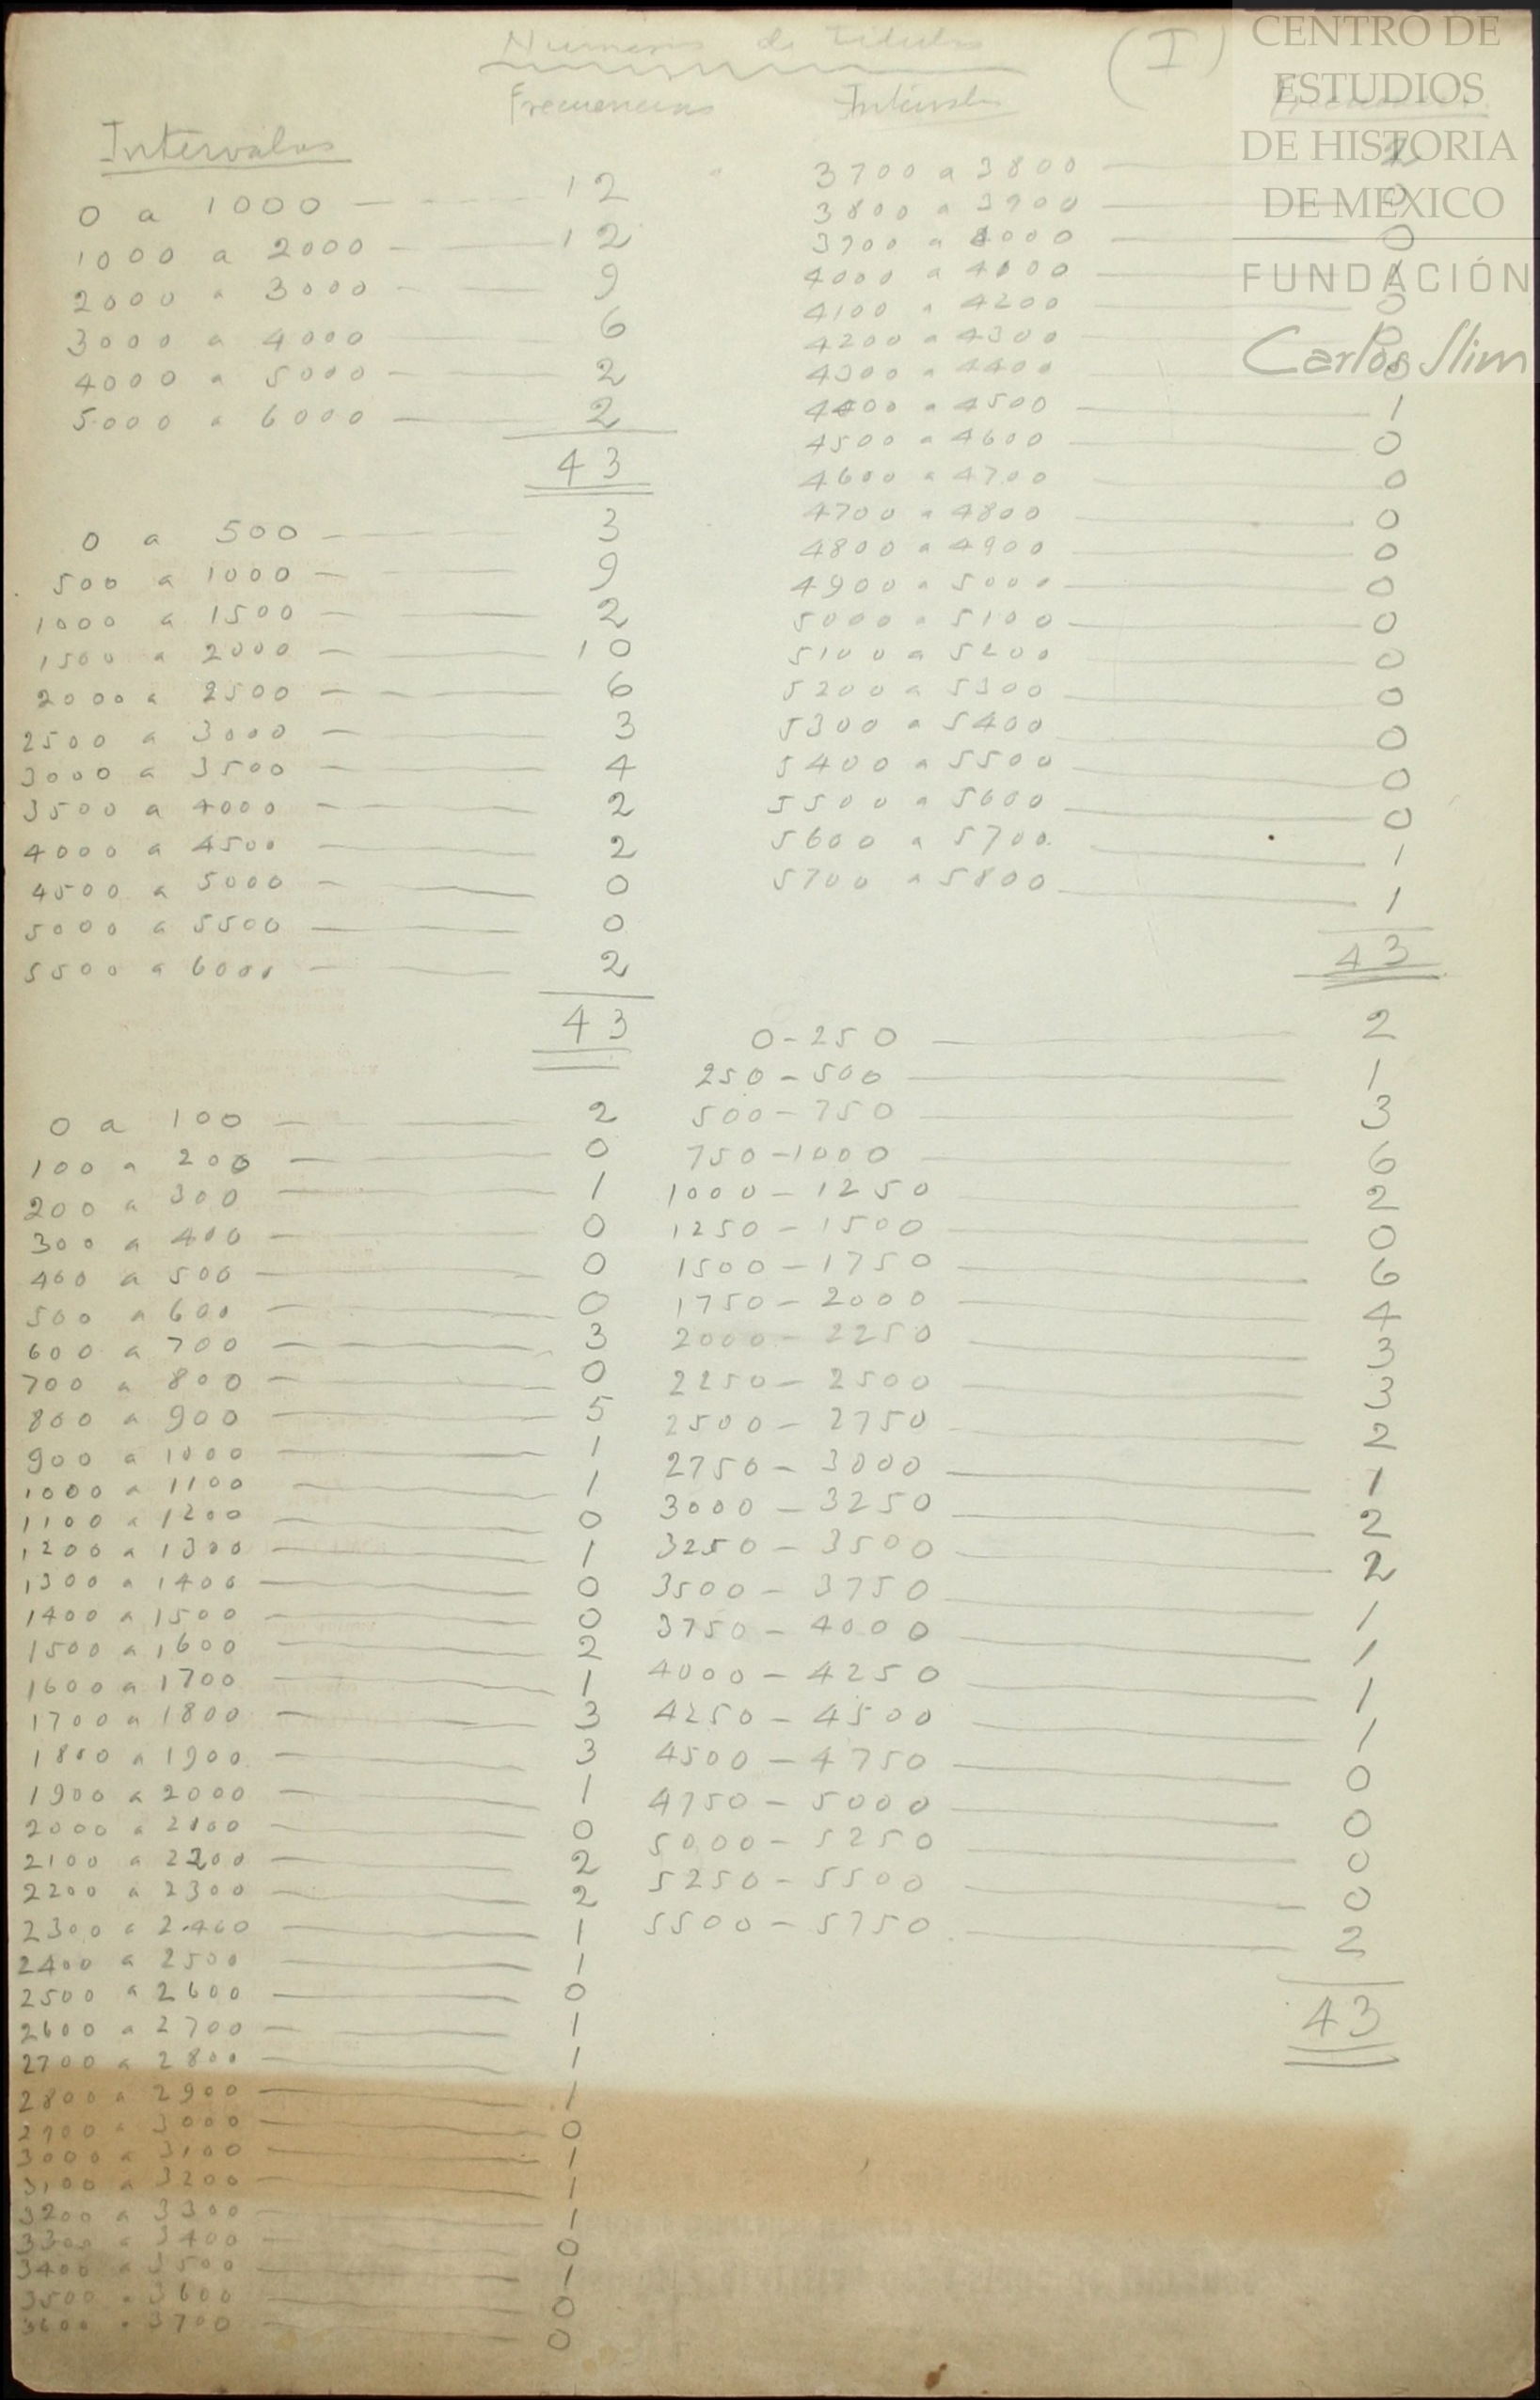 Números de títulos
(I)
Intervalos
Frecuencias
0 a 1000 — 12
1000 a 2000 — 12
2000 a 3000 — 9
3000 a 4000 — 6
4000 a 5000 — 2
5000 a 6000 — 2
43
0 a 500 — 3
500 a 1000 — 9
1000 a 1500 — 2
1500 a 2000 — 10
2000 a 2500 — 6
2500 a 3000 — 3
3000 a 3500 — 4
3500 a 4000 — 2
4000 a 4500 — 2
4500 a 5000 — 0
5000 a 5500 — 0
5500 a 6000 — 2
43
0 a 100 — 2
100 a 200 — 0
200 a 300 — 1
300 a 400 — 0
400 a 500 — 0
500 a 600 — 0
600 a 700 — 3
700 a 800 — 0
800 a 900 — 5
900 a 1000 — 1
1000 a 1100 — 1
1100 a 1200 — 0
1200 a 1300 — 1
1300 a 1400 — 0
1400 a 1500 — 0
1500 a 1600 — 2
1600 a 1700 — 1
1700 a 1800 — 3
1800 a 1900 — 3
1900 a 2000 — 1
2000 a 2100 — 0
2100 a 2200 — 2
2200 a 2300 — 2
2300 a 2400 — 1
2400 a 2500 — 1
2500 a 2600 — 0
2600 a 2700 — 1
2700 a 2800 — 1
2800 a 2900 — 1
2900 a 3000 — 0
3000 a 3100 — 1
3100 a 3200 — 1
3200 a 3300 — 1
3300 a 3400 — 0
3400 a 3500 — 1
3500 a 3600 — 0
3600 a 3700 — 0
3700 a 3800 —
3800 a 3900 — 0
3900 a 4000 — 0
4000 a 4100 — 1
4100 a 4200 — 0
4200 a 4300 — 0
4300 a 4400 — 0
4400 a 4500 — 1
4500 a 4600 — 0
4600 a 4700 — 0
4700 a 4800 — 0
4800 a 4900 — 0
4900 a 5000 — 0
5000 a 5100 — 0
5100 a 5200 — 0
5200 a 5300 — 0
5300 a 5400 — 0
5400 a 5500 — 0
5500 a 5600 — 0
5600 a 5700 — 1
5700 a 5800 — 1
43
0 - 250 — 2
250 - 500 — 1
500 - 750 — 3
750 - 1000 — 6
1000 - 1250 — 2
1250 - 1500 — 0
1500 - 1750 — 6
1750 - 2000 — 4
2000 - 2250 — 3
2250 - 2500 — 3
2500 - 2750 — 2
2750 - 3000 — 1
3000 - 3250 — 2
3250 - 3500 — 2
3500 - 3750 — 1
3750 - 4000 — 1
4000 - 4250 — 1
4250 - 4500 — 1
4500 - 4750 — 0
4750 - 5000 — 0
5000 - 5250 — 0
5250 - 5500 — 0
5500 - 5750 — 2
43
CENTRO DE
ESTUDIOS
DE HISTORIA
DE MEXICO
FUNDACIÓN
Carlos Slim